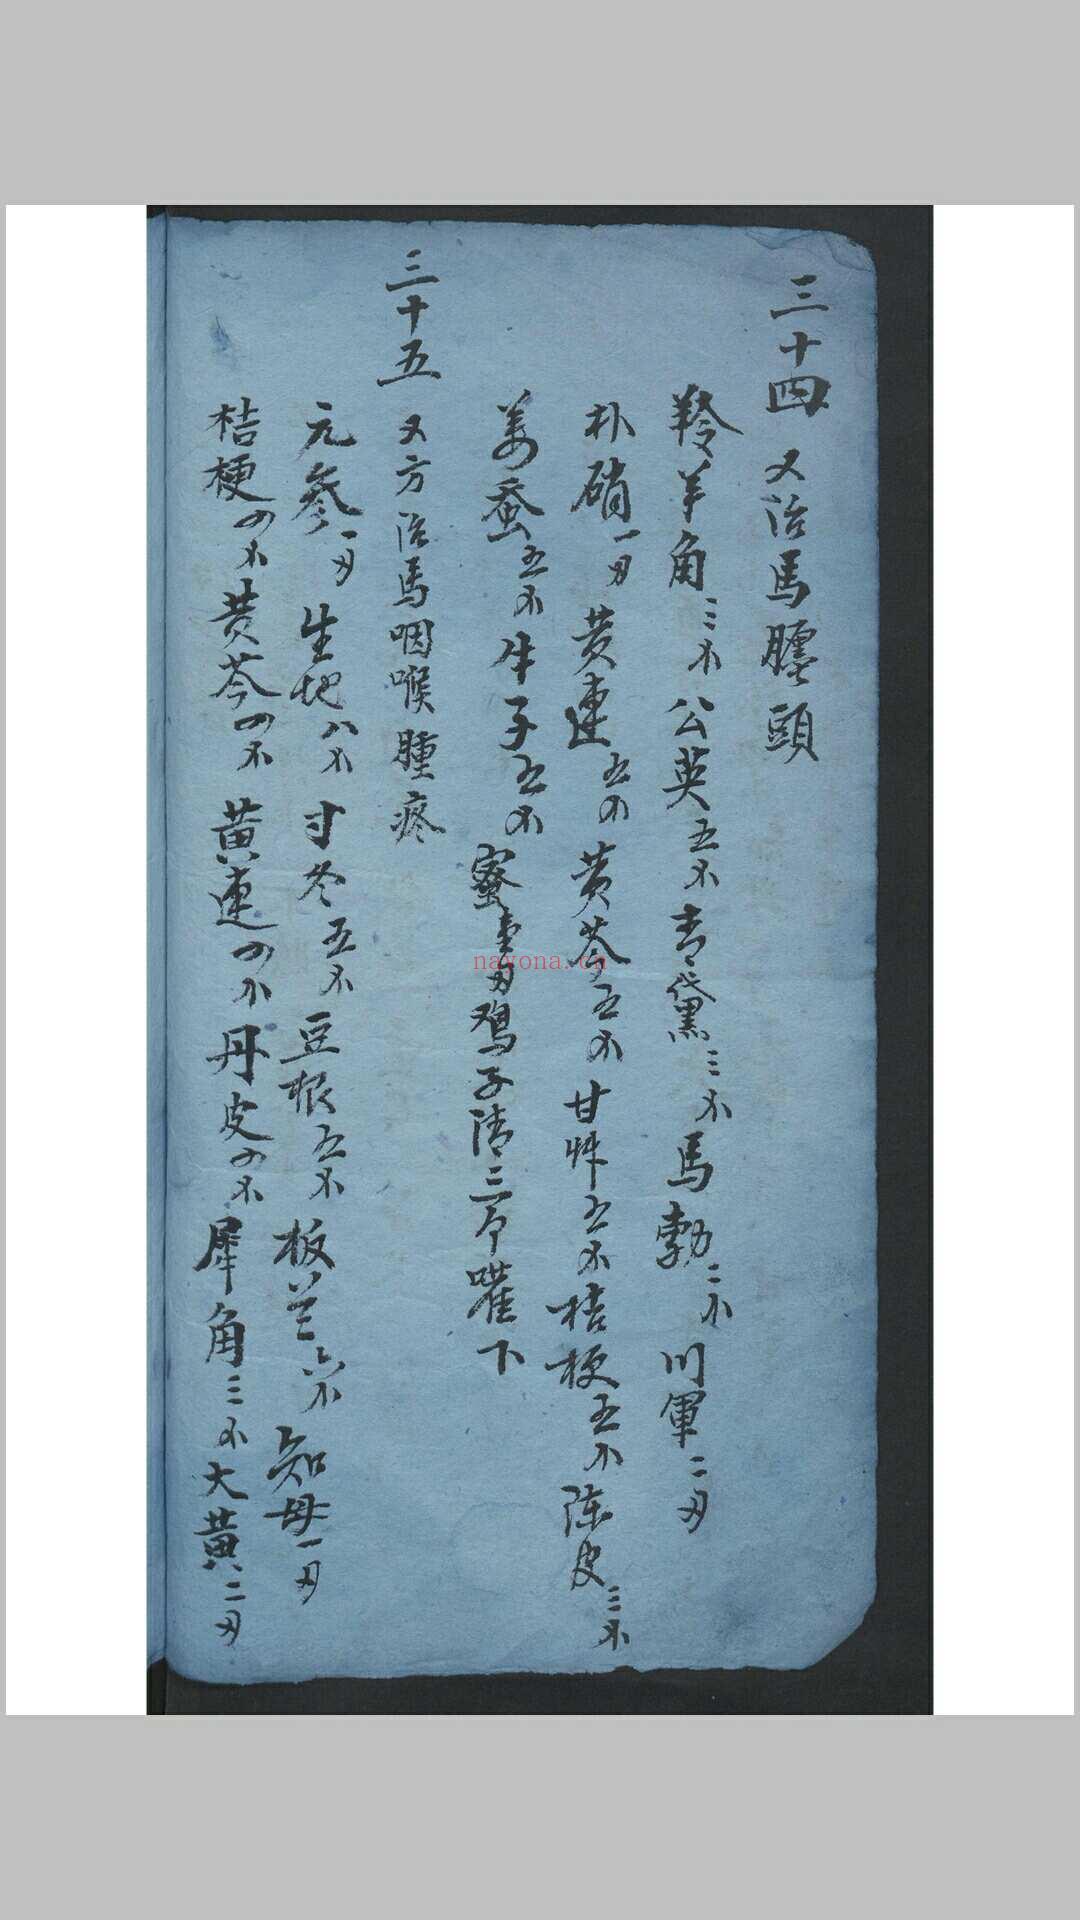 三十四 又治馬腫頭
羚羊角三不公英五不青黛三不馬勃二不川軍二刄
朴硝一刄黄連五不黄芩五不甘艸五不桔梗五不陈皮三不
姜蚕五不牛子五不蜜壹刄鸡子清三个嚾下
三十五 又方治馬咽喉腫疼
元參一刄生地八不寸冬五不豆根五不板兰六不知母一刄
桔梗四不黄芩四不黄連四不丹皮四不犀角三不大黄二刄
nayona.cn